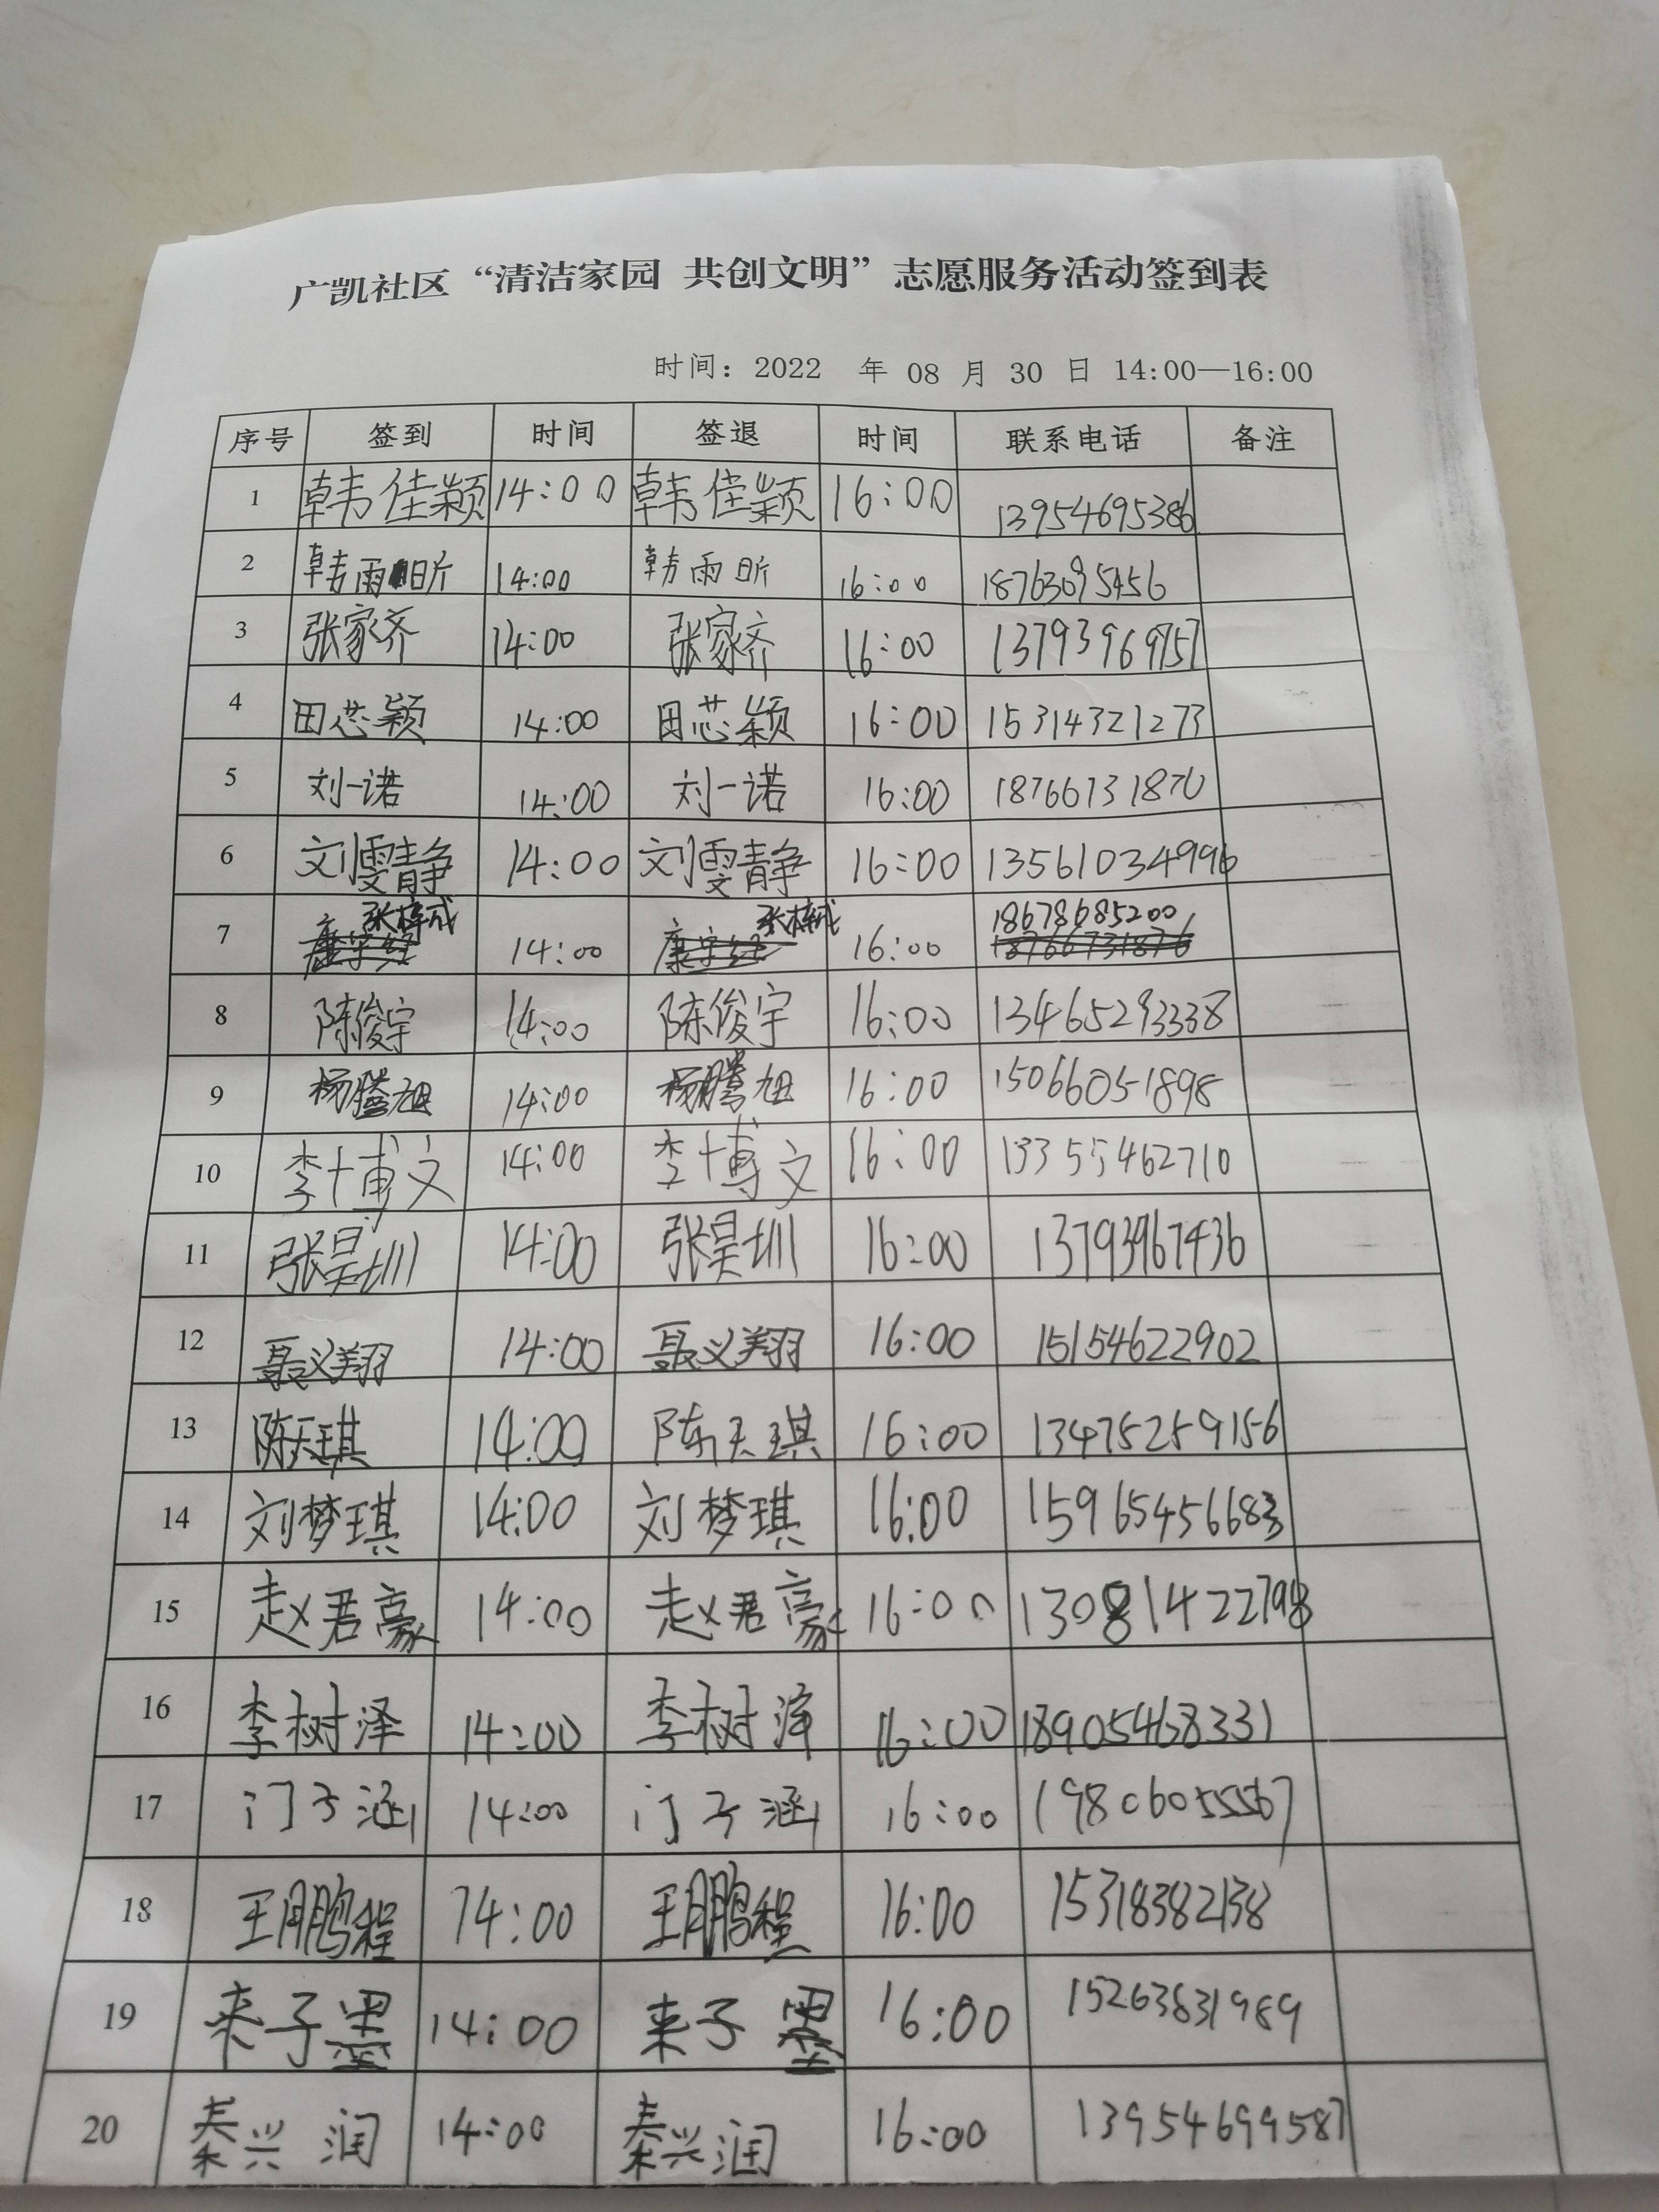 广凯社区“清洁家园 共创文明”志愿服务活动签到表
时间：2022 年 08 月 30 日 14:00—16:00
序号 签到 时间 签退 时间 联系电话 备注
1 韩佳颖 14:00 韩佳颖 16:00 13954695386
2 韩雨昕 14:00 韩雨昕 16:00 18763095456
3 张家齐 14:00 张家齐 16:00 13793969757
4 田芯颖 14:00 田芯颖 16:00 15314321273
5 刘一诺 14:00 刘一诺 16:00 18766731870
6 刘雯静 14:00 刘雯静 16:00 13561034996
7 张梓成 14:00 张梓成 16:00 18678685200
8 陈俊宇 14:00 陈俊宇 16:00 13465293338
9 杨腾旭 14:00 杨腾旭 16:00 15066051898
10 李博文 14:00 李博文 16:00 13355462710
11 张昊圳 14:00 张昊圳 16:00 13793967436
12 聂义翔 14:00 聂义翔 16:00 15154622902
13 陈天琪 14:00 陈天琪 16:00 13475259156
14 刘梦琪 14:00 刘梦琪 16:00 15965456683
15 赵君豪 14:00 赵君豪 16:00 13081422798
16 李树泽 14:00 李树泽 16:00 18905468331
17 门子涵 14:00 门子涵 16:00 19806055567
18 王鹏程 14:00 王鹏程 16:00 15318382138
19 来子墨 14:00 来子墨 16:00 15263831989
20 秦兴润 14:00 秦兴润 16:00 13954699587